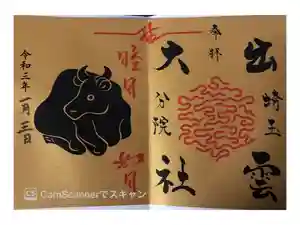 奉拝
埼玉
出雲
大社
分院
結
睦月
如月
令和三年
一月三日
CamScannerでスキャン